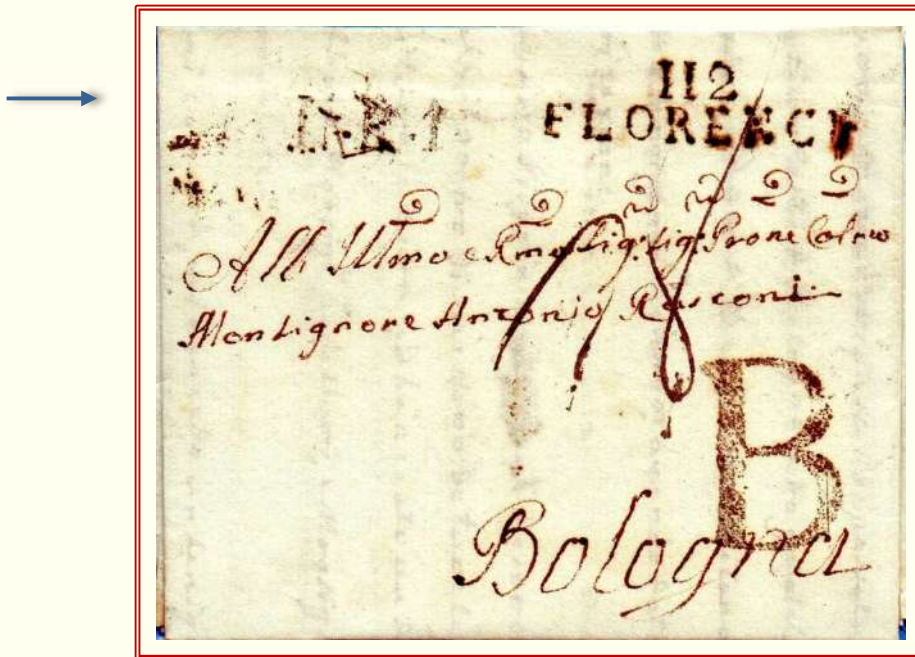 112
FLORENCE
All Illmo e Rmo Sig: Sig: Prone Colmo
Monsignore Antonio Rusconi
B
Bologna